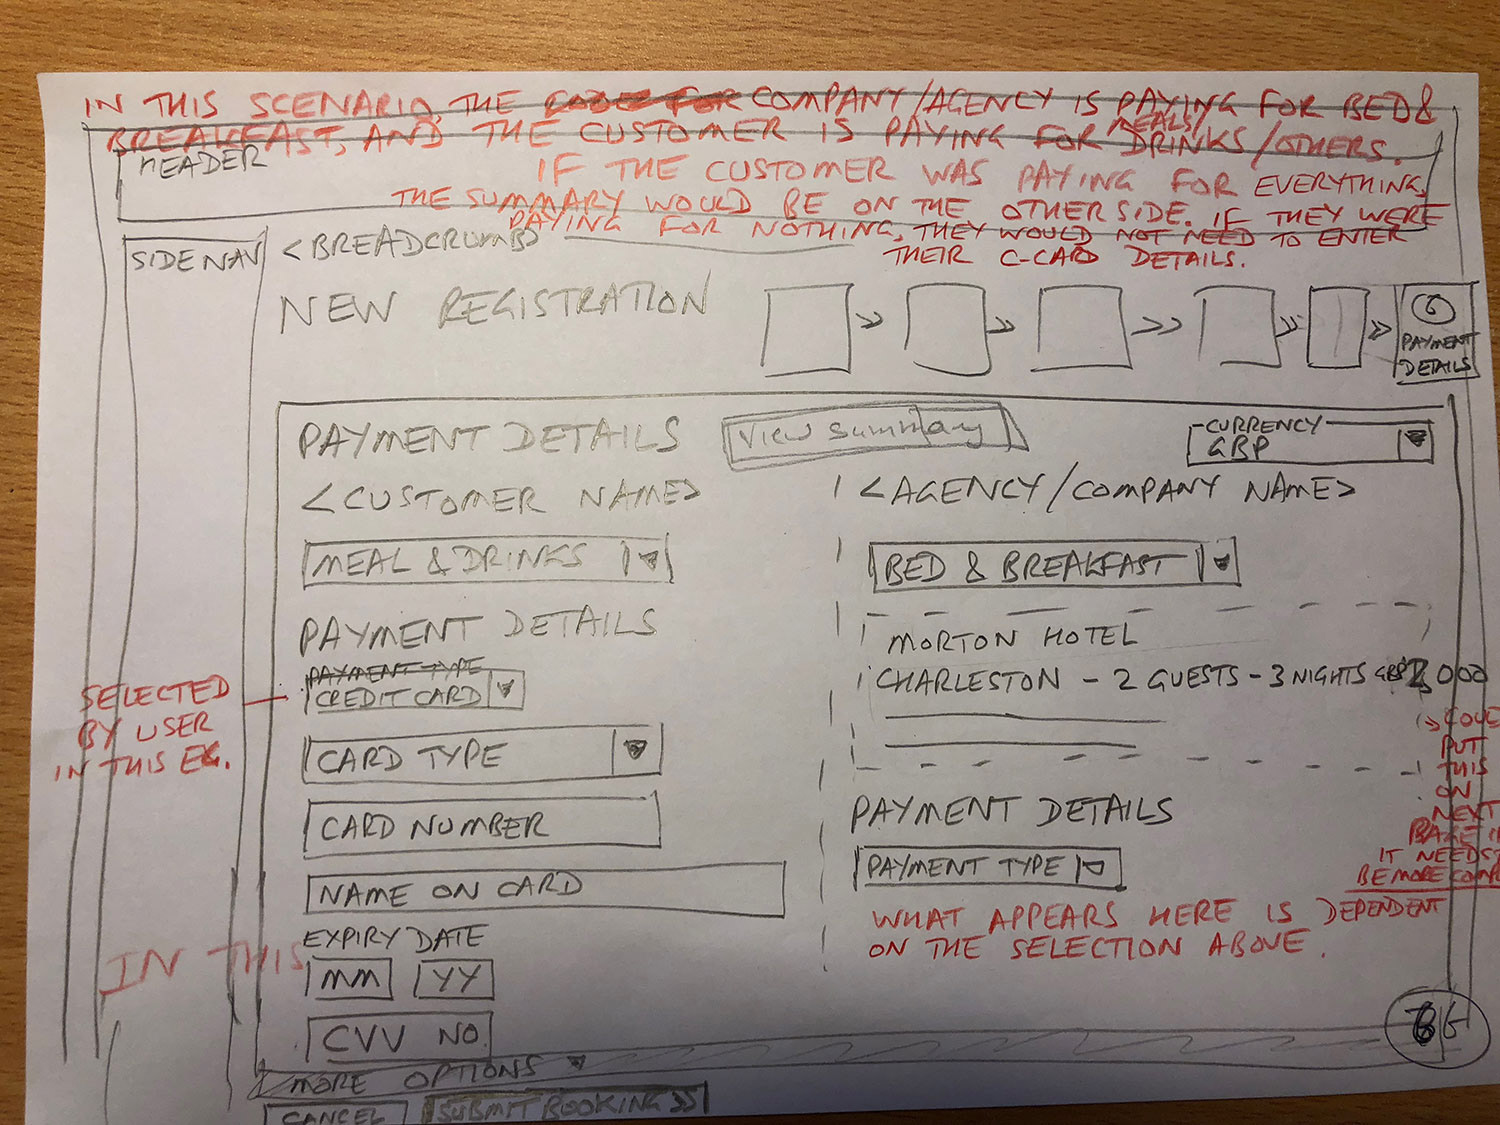 IN THIS SCENARIO, THE COMPANY/AGENCY IS PAYING FOR BED &
BREAKFAST, AND THE CUSTOMER IS PAYING FOR MEALS/
DRINKS/OTHERS.
IF THE CUSTOMER WAS PAYING FOR EVERYTHING,
THE SUMMARY WOULD BE ON THE OTHER SIDE. IF THEY WERE
PAYING FOR NOTHING, THEY WOULD NOT NEED TO ENTER
THEIR C-CARD DETAILS.
HEADER
SIDE NAV
<BREADCRUMB>
NEW REGISTRATION
» » » » »
6
PAYMENT
DETAILS
PAYMENT DETAILS
View Summary
CURRENCY
GBP
<CUSTOMER NAME>
<AGENCY/COMPANY NAME>
MEAL & DRINKS
BED & BREAKFAST
PAYMENT DETAILS
PAYMENT TYPE
CREDIT CARD
SELECTED
BY USER
IN THIS EG.
MORTON HOTEL
CHARLESTON - 2 GUESTS - 3 NIGHTS GBP 000
CARD TYPE
CARD NUMBER
NAME ON CARD
EXPIRY DATE
MM YY
CVV NO.
PAYMENT DETAILS
PAYMENT TYPE
WHAT APPEARS HERE IS DEPENDENT
ON THE SELECTION ABOVE.
PUT
THIS
ON
NEXT
IT NEEDS
BE MORE
IN THIS
MORE OPTIONS
CANCEL
SUBMIT BOOKING »